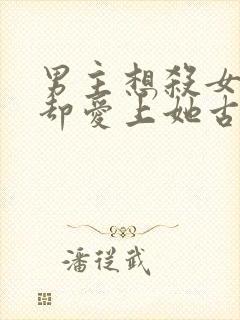 男主想殺女
却愛上她古
潘從武